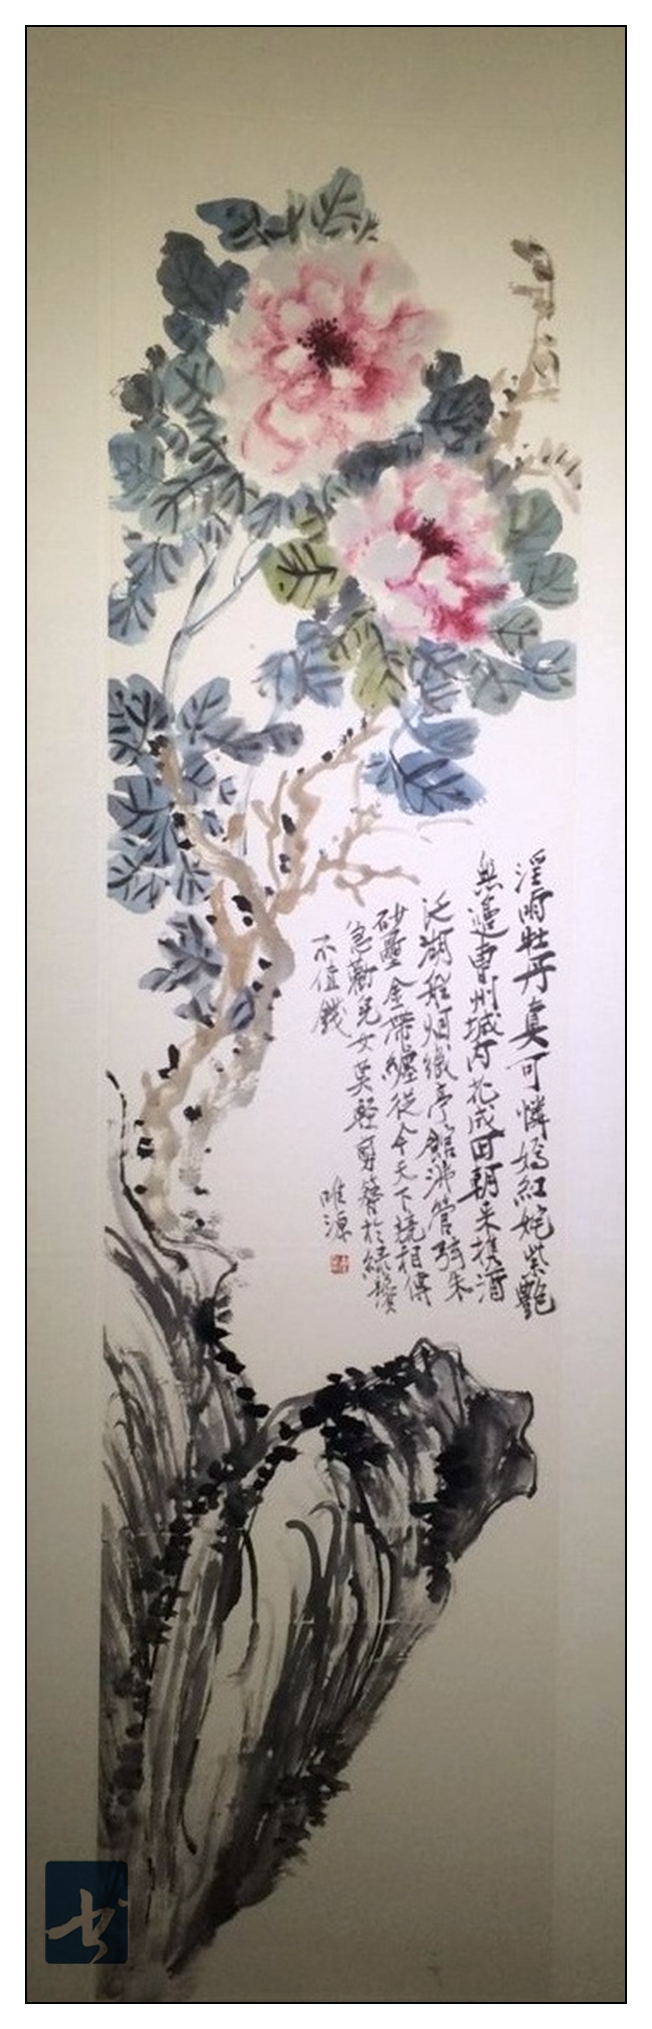 淫雨牡丹真可憐嫣紅姹紫艷
無邊曹州城內花成田朝來携酒
泛湖船烟織亭館沸管弦朱
砂壓金帶纏從今天下擾相傳
急勸兒女莫輕剪簪於綠鬢
不值錢
唯源
书